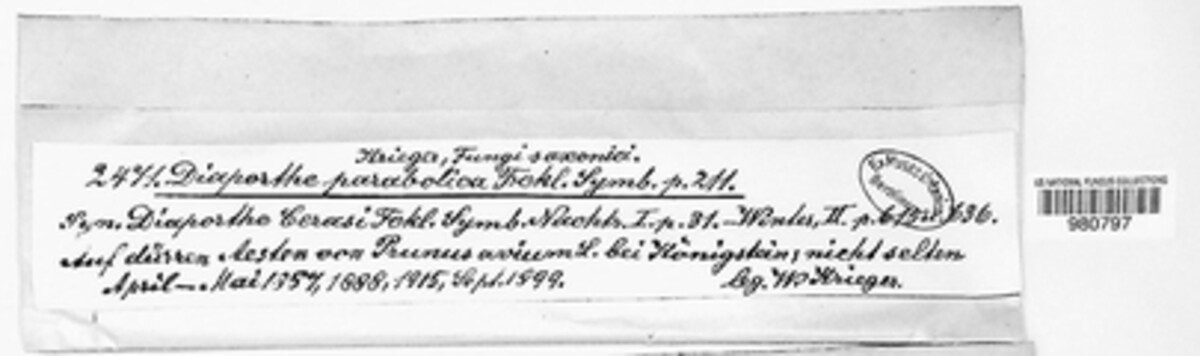 Krieger, Fungi saxonici.
2471. Diaporthe parabolica Fckl. Symb. p. 211.
Syn. Diaporthe Cerasi Fckl. Symb. Nachtr. I. p. 31. – Winter, II. p. 636.
Auf dürren Aesten von Prunus avium L. bei Königstein; nicht selten
April – Mai 1887, 1888, 1915, Sept. 1899. leg. W. Krieger.
US NATIONAL FUNGUS COLLECTIONS
980797